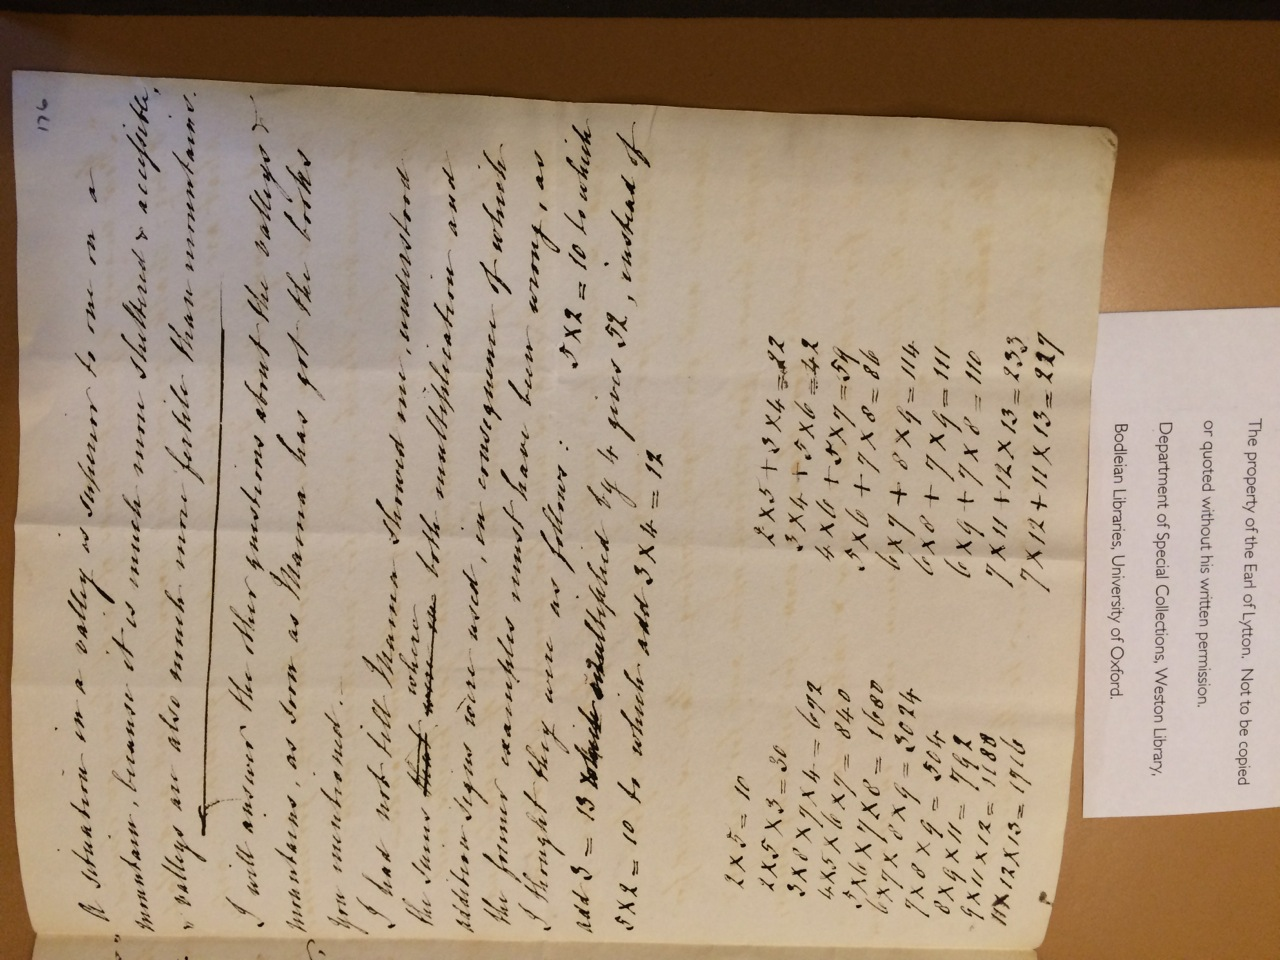 176
A situation in a valley is superior to one on a
mountain, because it is much more sheltered & accessible,
& valleys are also much more fertile than mountains.
I will answer the other questions about the valleys &
mountains, as soon as Mama has got the books
you mentioned.
I had not till Mama showed me, understood
where
the sums that were in both multiplication and
addition signs were used, in consequence of which
the former examples must have been wrong, as
I thought they were as follows: 5 X 2 = 10 to which
add 3 = 13 which multiplied by 4 gives 52, instead of
5 X 2 = 10 to which add 3 X 4 = 12
2 X 5 = 10
2 X 5 X 3 = 30
3 X 8 X 7 X 4 = 692
4 X 5 X 6 X 7 = 840
5 X 6 X 7 X 8 = 1680
6 X 7 X 8 X 9 = 3024
7 X 8 X 9 = 504
8 X 9 X 11 = 792
9 X 11 X 12 = 1188
11 X 12 X 13 = 1716
2 X 5 + 3 X 4 = 22
3 X 4 + 5 X 6 = 42
4 X 6 + 5 X 7 = 59
5 X 6 + 7 X 8 = 86
6 X 7 + 8 X 9 = 114
6 X 8 + 7 X 9 = 111
6 X 9 + 7 X 8 = 110
7 X 11 + 12 X 13 = 233
7 X 12 + 11 X 13 = 227
The property of the Earl of Lytton. Not to be copied
or quoted without his written permission.
Department of Special Collections, Weston Library,
Bodleian Libraries, University of Oxford.